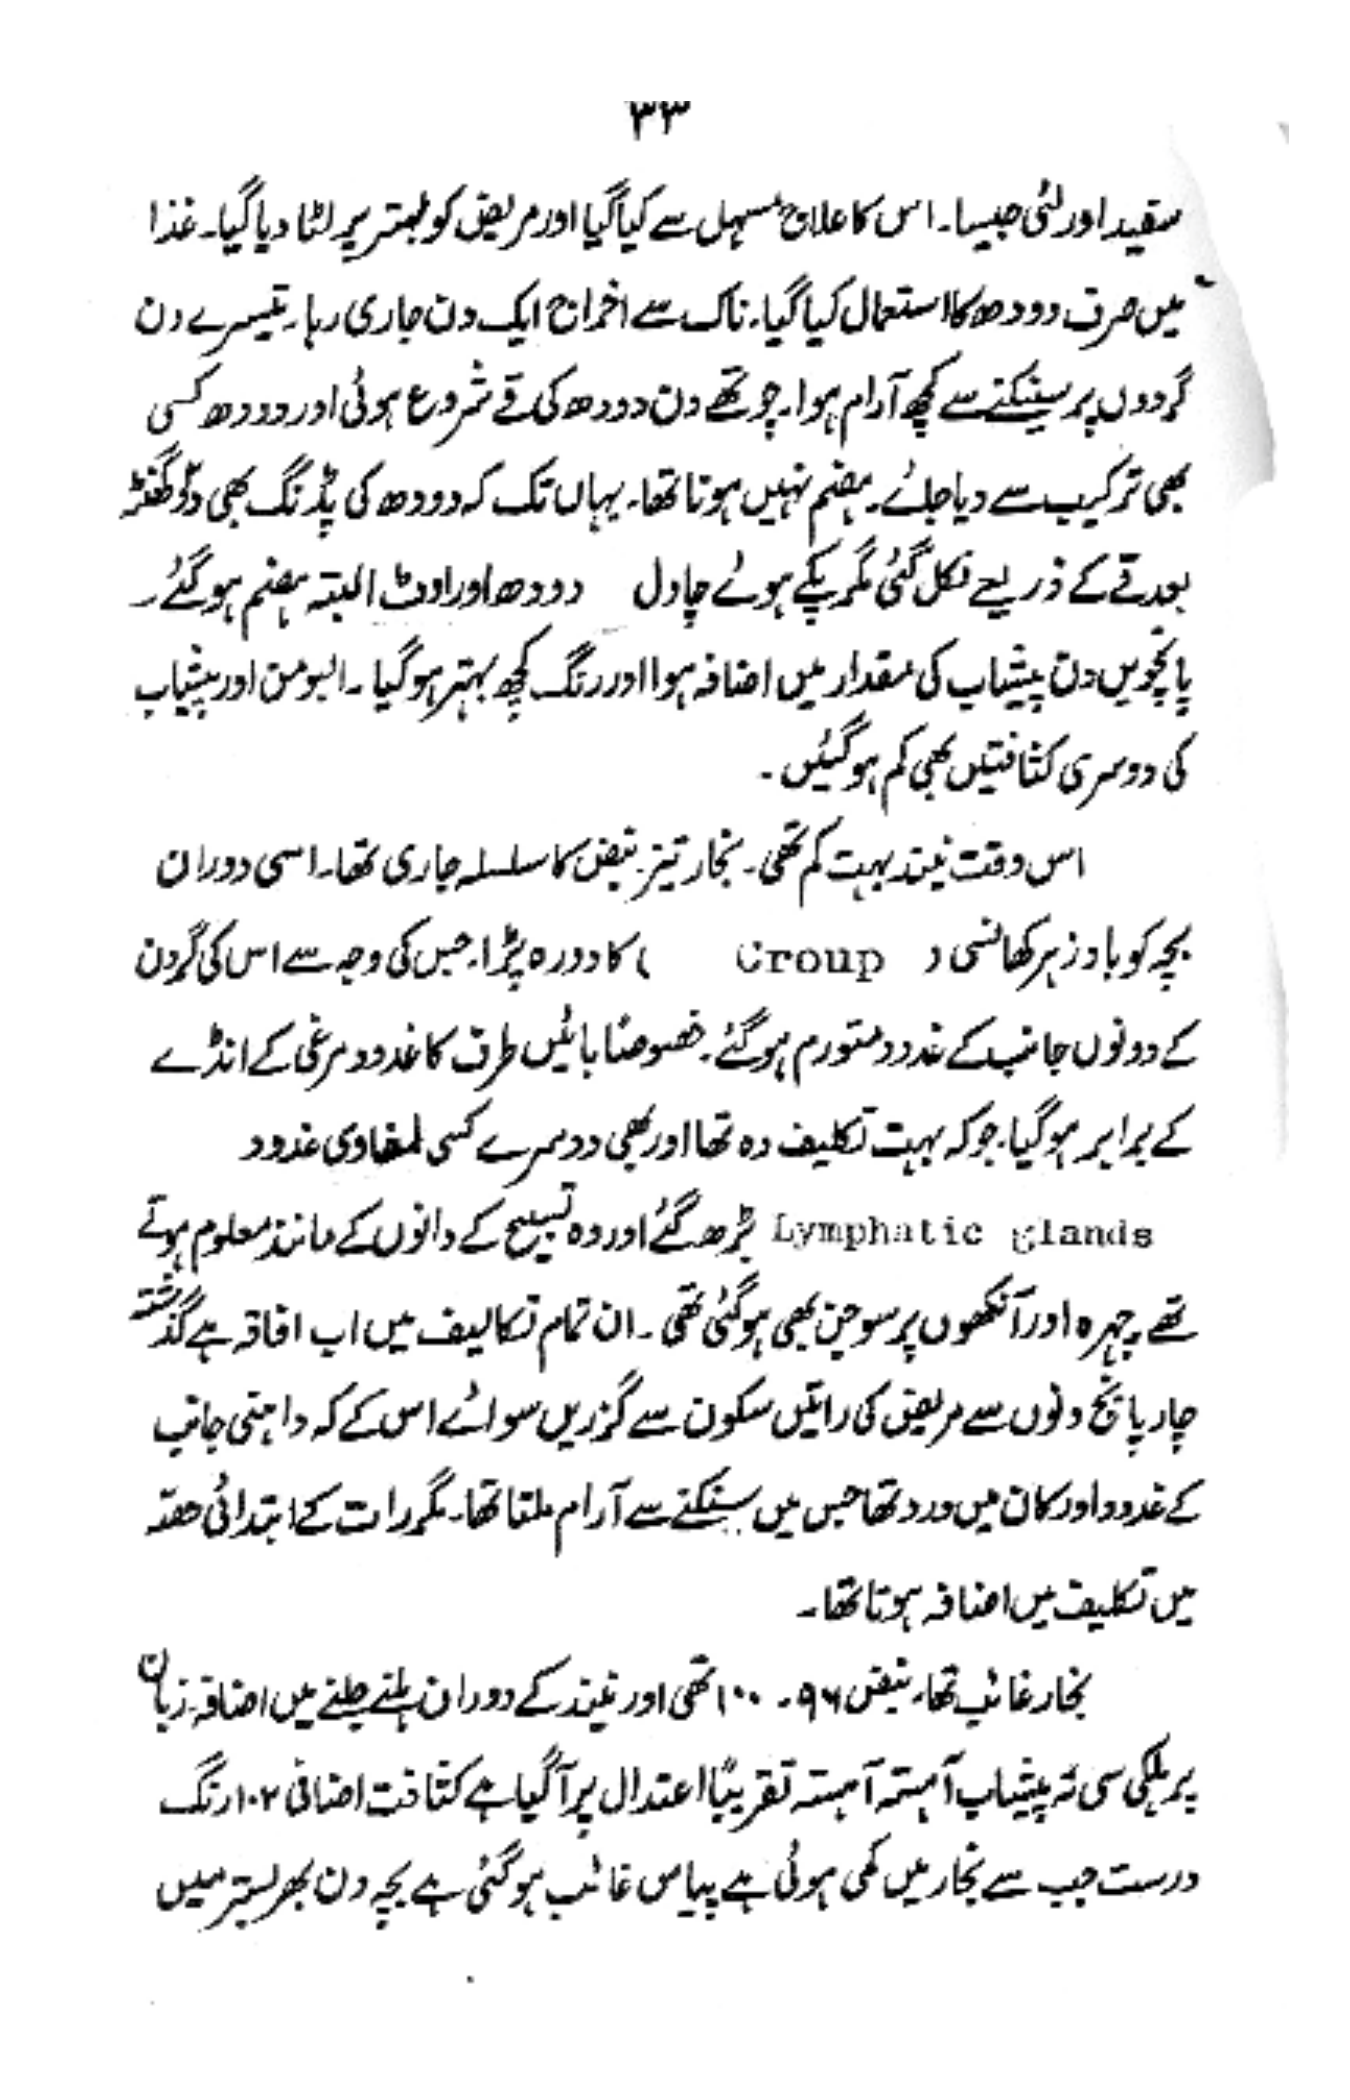 ۳۳
سفید اور لئی جیسا۔ اس کا علاج مسہل سے کیا گیا اور مریض کو بستر پر لٹا دیا گیا۔ غذا
میں صرف دودھ کا استعمال کیا گیا۔ ناک سے اخراج ایک دن جاری رہا۔ تیسرے دن
گردوں پر سینکنے سے کچھ آرام ہوا۔ چوتھے دن دودھ کی قے شروع ہوئی اور دودھ کسی
بھی ترکیب سے دیا جائے۔ ہضم نہیں ہوتا تھا۔ یہاں تک کہ دودھ کی پڈنگ بھی دو گھنٹہ
بعد قے کے ذریعے نکل گئی مگر پکے ہوئے چاول دودھ اور اوٹ البتہ ہضم ہو گئے۔
پانچویں دن پیشاب کی مقدار میں اضافہ ہوا اور رنگ کچھ بہتر ہو گیا۔ البومن اور پیشاب
کی دوسری کثافتیں بھی کم ہو گئیں۔
اس وقت نیند بہت کم تھی۔ بخار تیز۔ نبض کا سلسلہ جاری تھا۔ اسی دوران
بچہ کو باد زہر کھانسی ( Croup ) کا دورہ پڑا۔ جس کی وجہ سے اس کی گردن
کے دونوں جانب کے غدود متورم ہو گئے۔ خصوصاً بائیں طرف کا غدود مرغی کے انڈے
کے برابر ہو گیا۔ جو کہ بہت تکلیف دہ تھا اور بھی دوسرے کسی لمفاوی غدود
Lymphatic glands بڑھ گئے اور وہ تسبیح کے دانوں کے مانند معلوم ہوتے
تھے۔ چہرہ اور آنکھوں پر سوجن بھی ہو گئی تھی۔ ان تمام تکالیف میں اب افاقہ ہے گذشتہ
چار پانچ دنوں سے مریض کی راتیں سکون سے گزریں سوائے اس کے کہ داہنی جانب
کے غدود اور کان میں درد تھا جس میں سینکنے سے آرام ملتا تھا۔ مگر رات کے ابتدائی حصّہ
میں تکلیف میں اضافہ ہوتا تھا۔
بخار غائب تھا، نبض ۹۶۔ ۱۰۰ تھی اور نیند کے دوران ہلنے جلنے میں اضافہ۔ زبان
پر ہلکی سی تہ پیشاب آہستہ آہستہ تقریباً اعتدال پر آ گیا ہے کثافت اضافی ۱۰۲ رنگ
درست جب سے بخار میں کمی ہوئی ہے پیاس غائب ہو گئی ہے بچہ دن بھر بستر میں